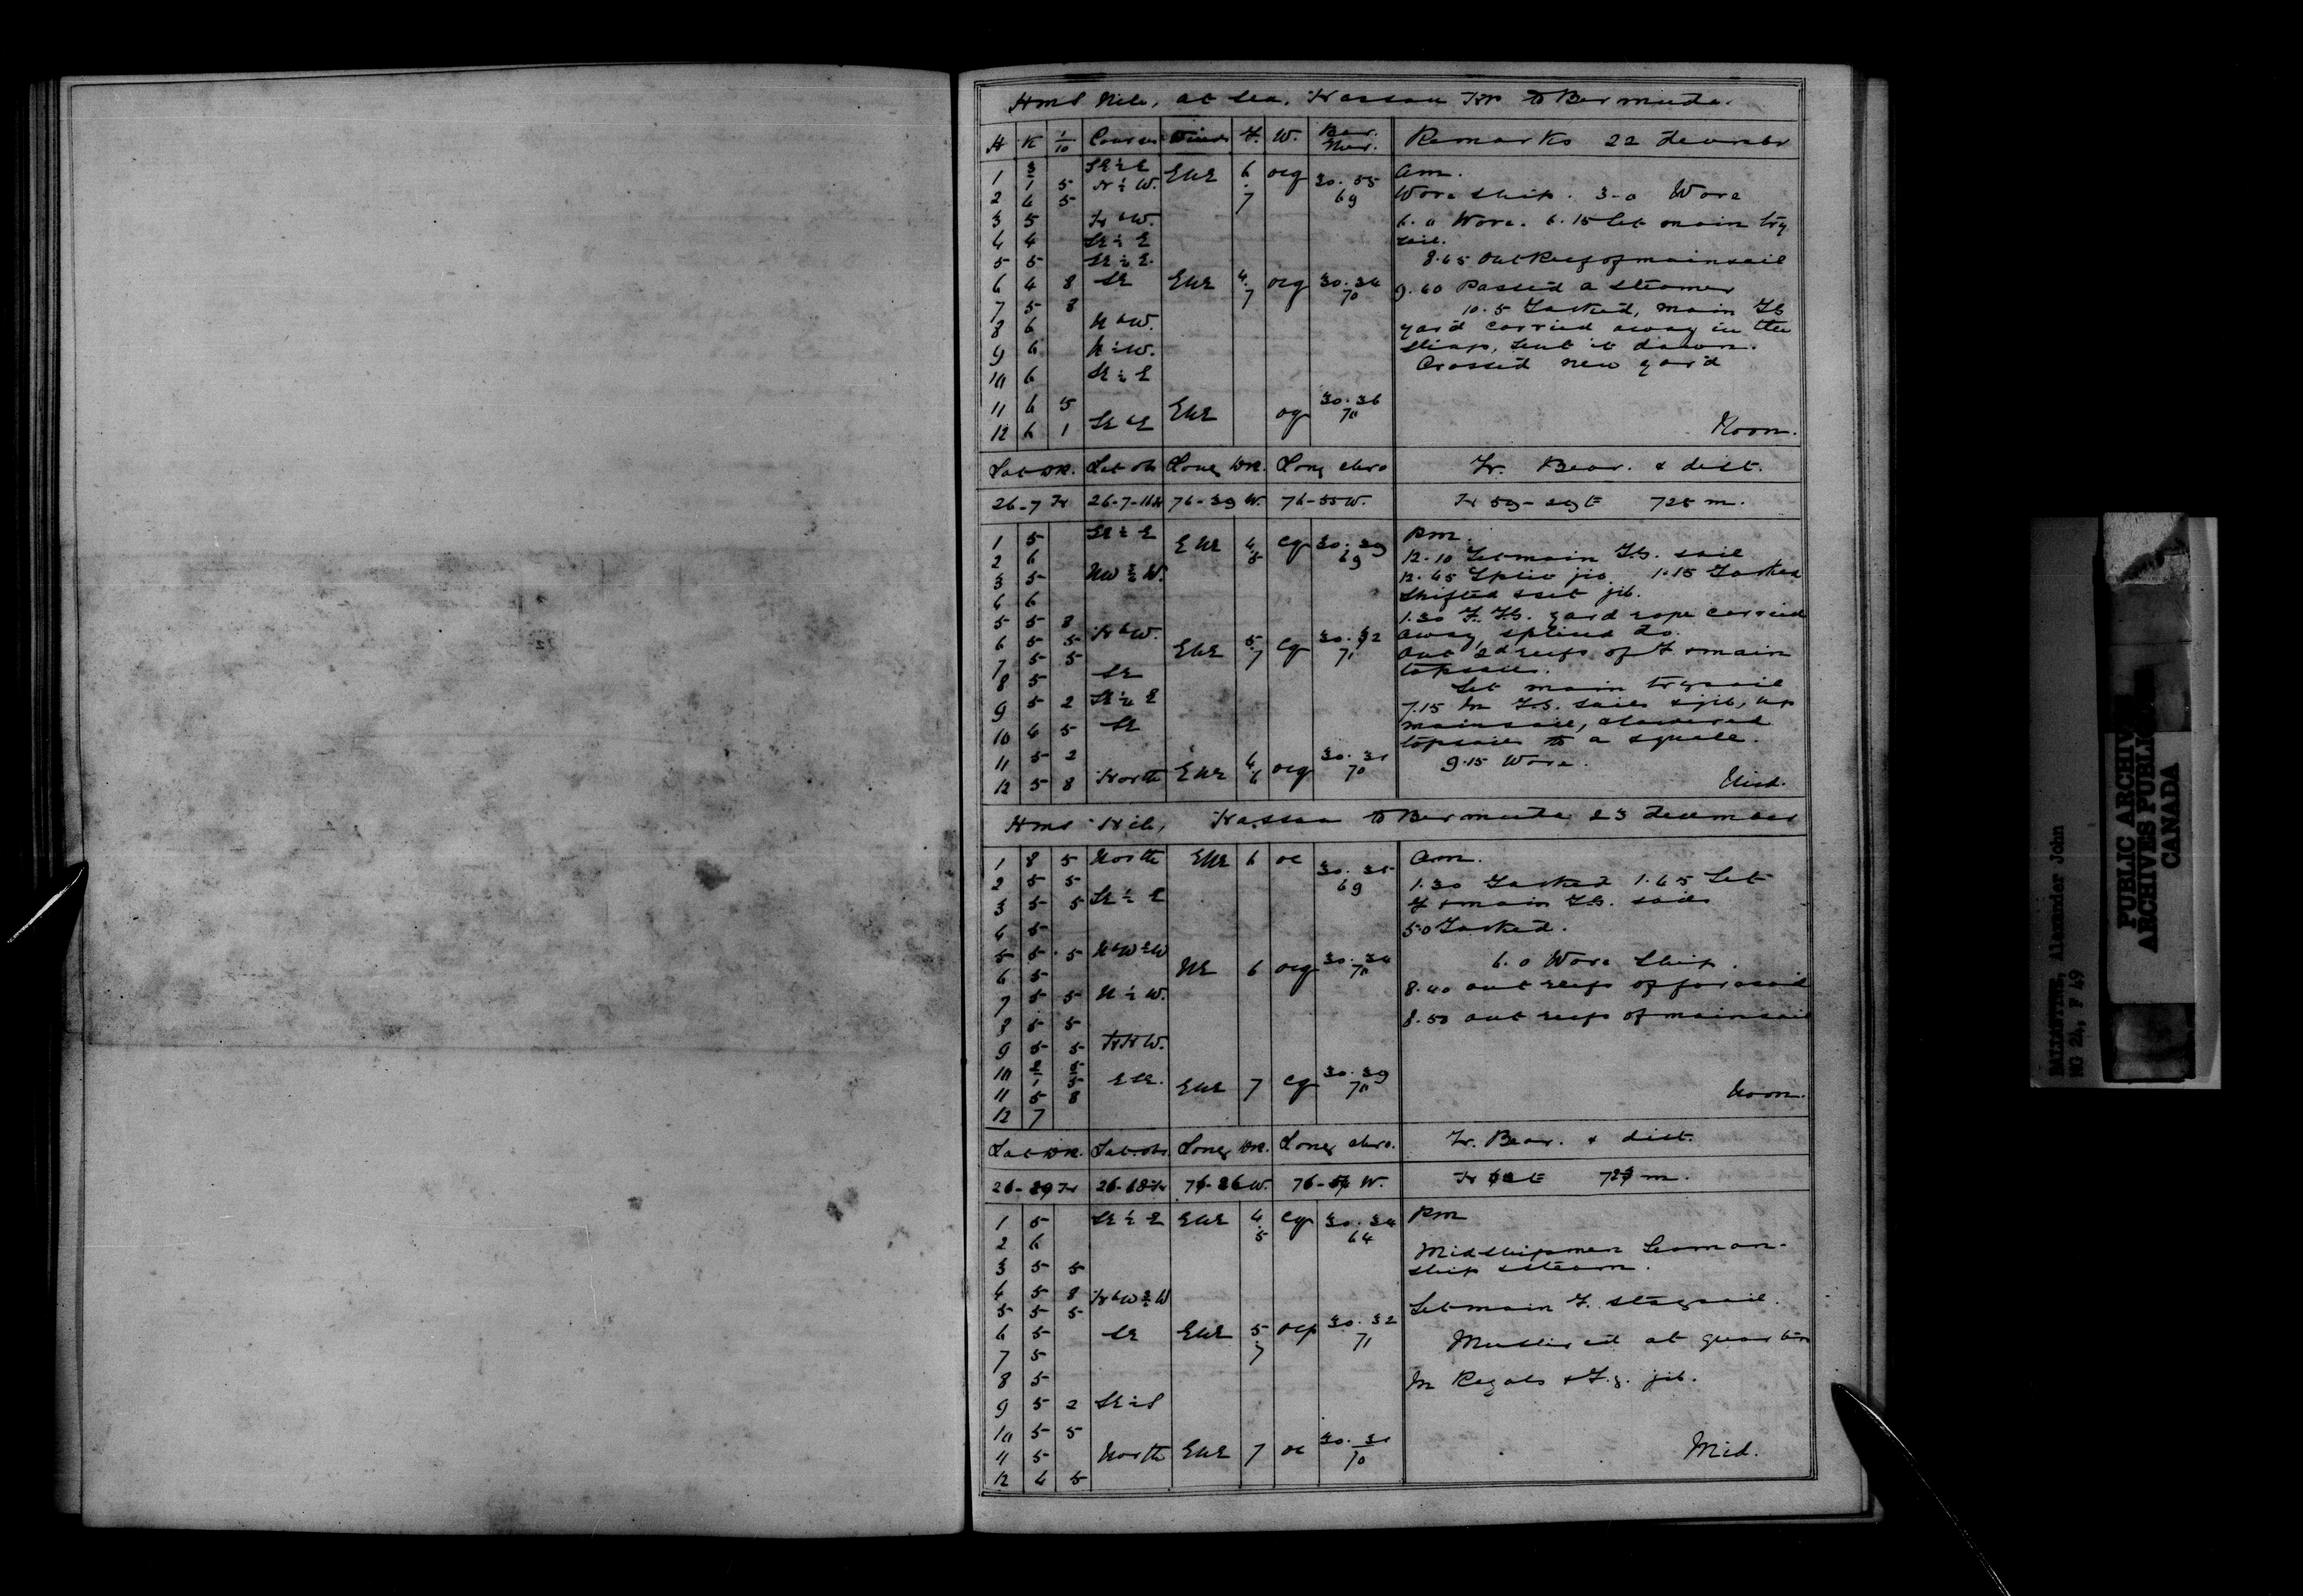 HMS Nile, at Sea, Nassau NP to Bermuda.
H K 1/10 Courses Winds F. W. Bar. Ther. Remarks 22 December
1 3 SE½E ENE 6 ocq 30.35 Am.
1 5 N½W. 7 69
2 4 5 Wore ship. 3-0 Wore
3 5 NbW. 6.0 Wore. 6.15 Set main try
4 4 SE½E sail.
5 5 SE½E. 8.45 Out Reef of mainsail
6 4 8 SE ENE 4.7 ocq 30.34 70 9.40 Passed a steamer
7 5 8 10.5 Tacked, main TG
8 6 NbW. yard carried away in the
9 6 N½W. slings, sent it down.
10 6 SE½E Crossed new yard
11 6 5 ENE oq 30.36 70
12 6 1 SEbE Noon.
Lat DR. Lat obs Long DR. Long chro Tr. Bear. & dist.
26-7 N 26-7-11N 76-39 W. 76-55 W. N 59-29 E 725 m.
1 5 SE½E ENE 4.5 cq 30.29 69 PM.
2 6 12.10 Set main T.G. sail
3 5 NW¾W. 12.45 Split jib 1.15 Tacked
4 6 Shifted & set jib.
5 5 8 1.30 F.T.G. yard rope carried
6 5 5 NbW. ENE 5.7 cq 30.32 71 away, spliced do.
7 5 5 Out 2d reefs of F & main
8 5 SE topsails.
9 5 2 SE½E Set main trysail
10 4 5 SE 7.15 In T.G. sails & jib, up
mainsail, & lowered
topsails to a squall.
11 5 2 9.15 Wore.
12 5 8 North ENE 4.6 ocq 30.31 70 Mid.
HMS Nile, Nassau to Bermuda 23 December
1 8 5 North ENE 6 oc 30.35 69 Am.
2 5 5 1.30 Tacked 1.45 Set
3 5 5 SE½E F & main T.G. sails
4 5 5.0 Tacked.
5 5 5 NbW½W
6 5 NE 6 ocq 30.34 70 6.0 Wore Ship.
7 5 5 N½W. 8.40 out reefs of foresail
8 5 5 8.50 out reefs of mainsail
9 5 5 NNW.
10 2 5
1 5 ESE. ENE 7 cq 30.39 70
11 5 8
12 7 Noon.
Lat DR. Lat obs. Long DR. Long chro. Tr. Bear. & dist.
1 5 SE½E ENE 4.5 cq 30.34 64 PM
2 6 Midshipmen Seaman-
3 5 5 ship & steam.
4 5 8 NbW¾W
5 5 5 Set main T. staysail.
6 5 SE ENE 5.7 ocp 30.32 71 Mustered at quarters
7 5
8 5 In Royals & F.g. jib.
9 5 2 SE½S
10 5 5
11 5 North ENE 7 oc 30.31 70 Mid.
12 4 5
BALLANTINE, Alexander John
MG 24, F 49
PUBLIC ARCHIV
ARCHIVES PUBLI
CANADA